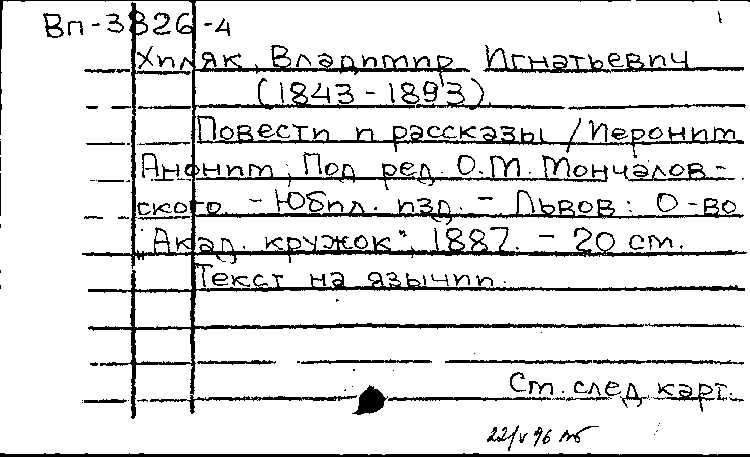 Вп-3826-4
1
Хиляк, Владимир Игнатьевич
(1843-1893).
Повести и рассказы / Иероним
Аноним; Под ред. О.М. Мончалов-
ского. - Юбил. изд. - Львов: О-во
"Акад. кружок", 1887. - 20 см.
Текст на язычии.
См. след. карт.
22/V 96